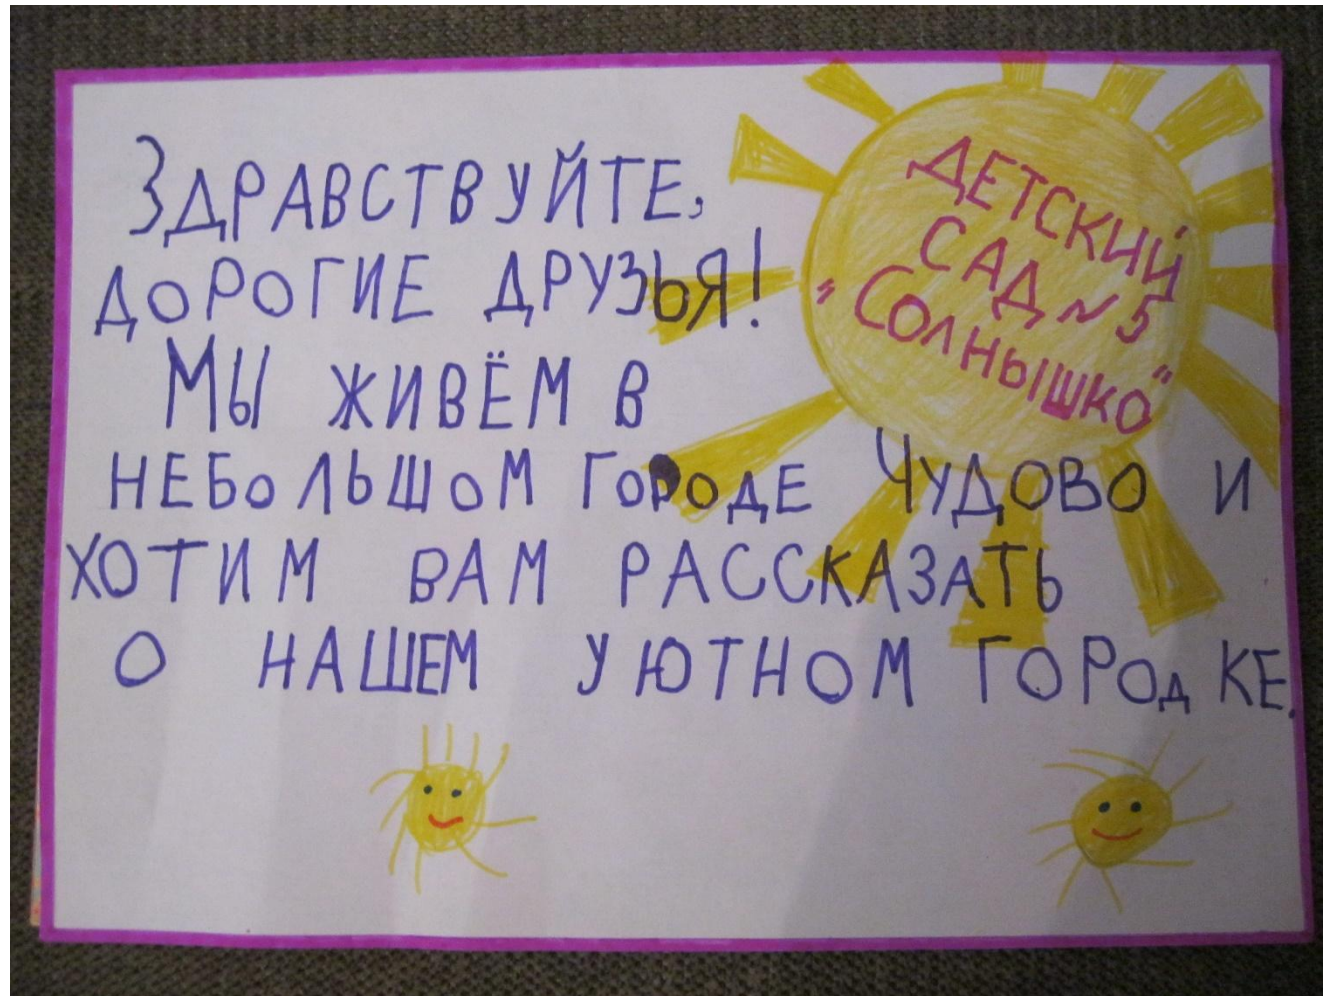 ЗДРАВСТВУЙТЕ,
ДОРОГИЕ ДРУЗЬЯ!
МЫ ЖИВЁМ В
НЕБОЛЬШОМ ГОРОДЕ ЧУДОВО И
ХОТИМ ВАМ РАССКАЗАТЬ
О НАШЕМ УЮТНОМ ГОРОДКЕ.
ДЕТСКИЙ
САД ~ 5
"СОЛНЫШКО"